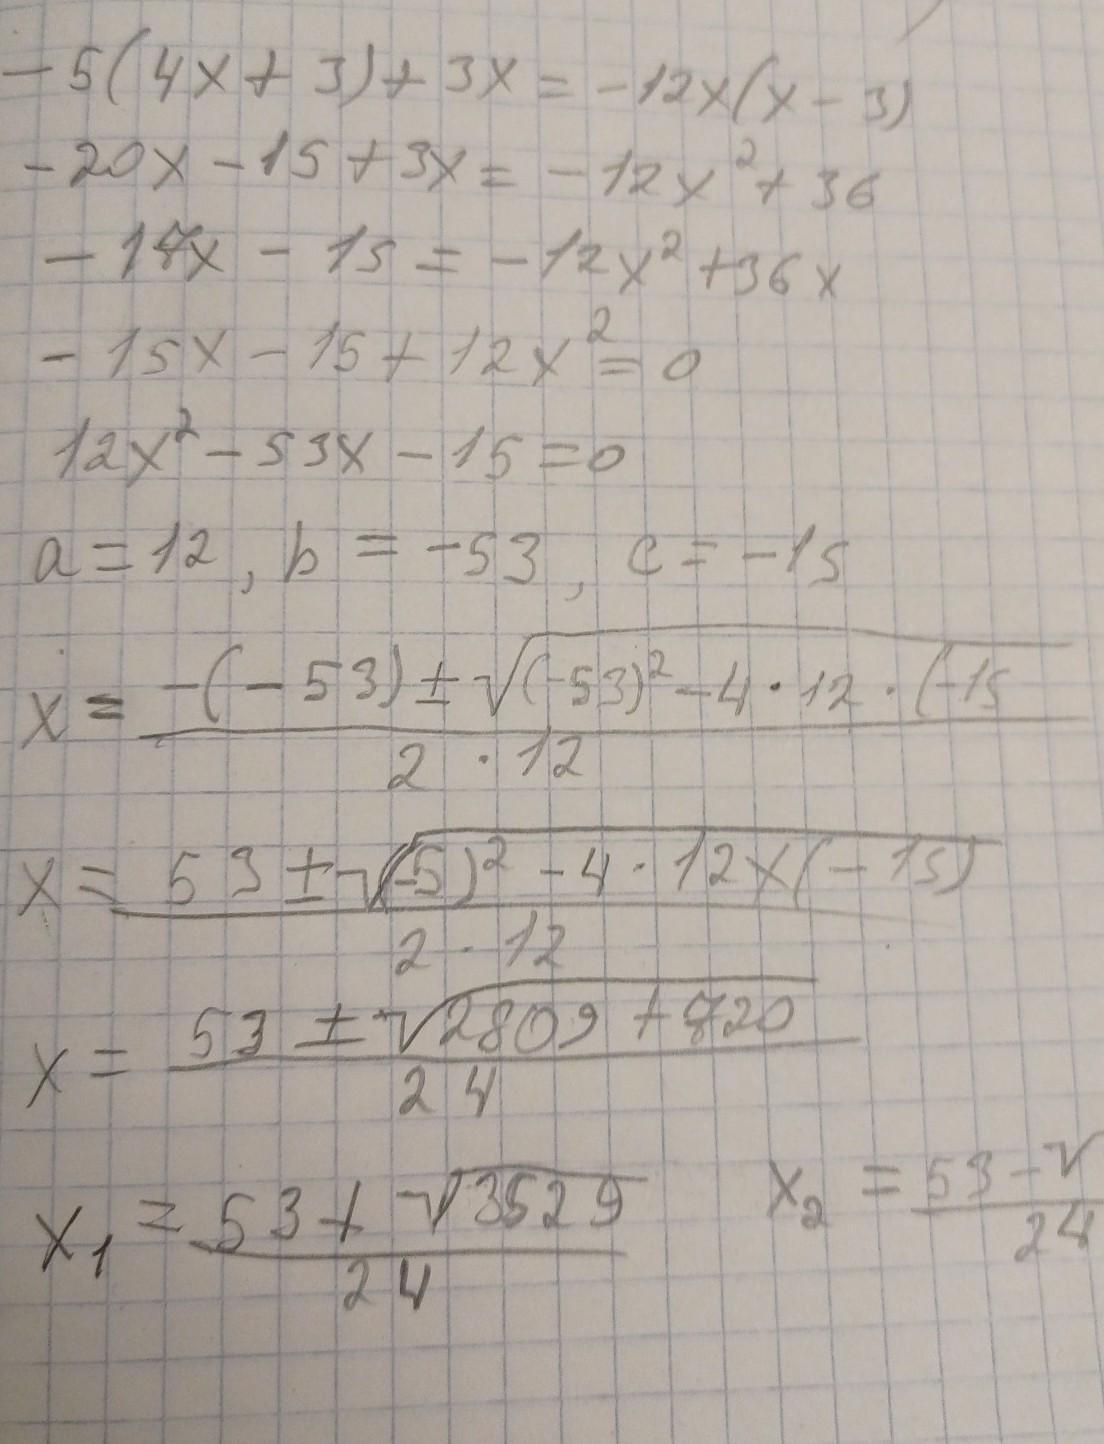 -5(4x+3)+3x=-12x(x-3)
-20x-15+3x=-12x²+36
-17x-15=-12x²+36x
-15x-15+12x²=0
12x²-53x-15=0
a=12, b=-53, c=-15
x=(-(-53)±√((-53)²-4·12·(-15)/(2·12)
x=(53±√((-5)²-4·12x(-15)))/(2·12)
x=(53±√(2809+720))/24
x₁=(53+√3529)/24 x₂=(53-√)/24